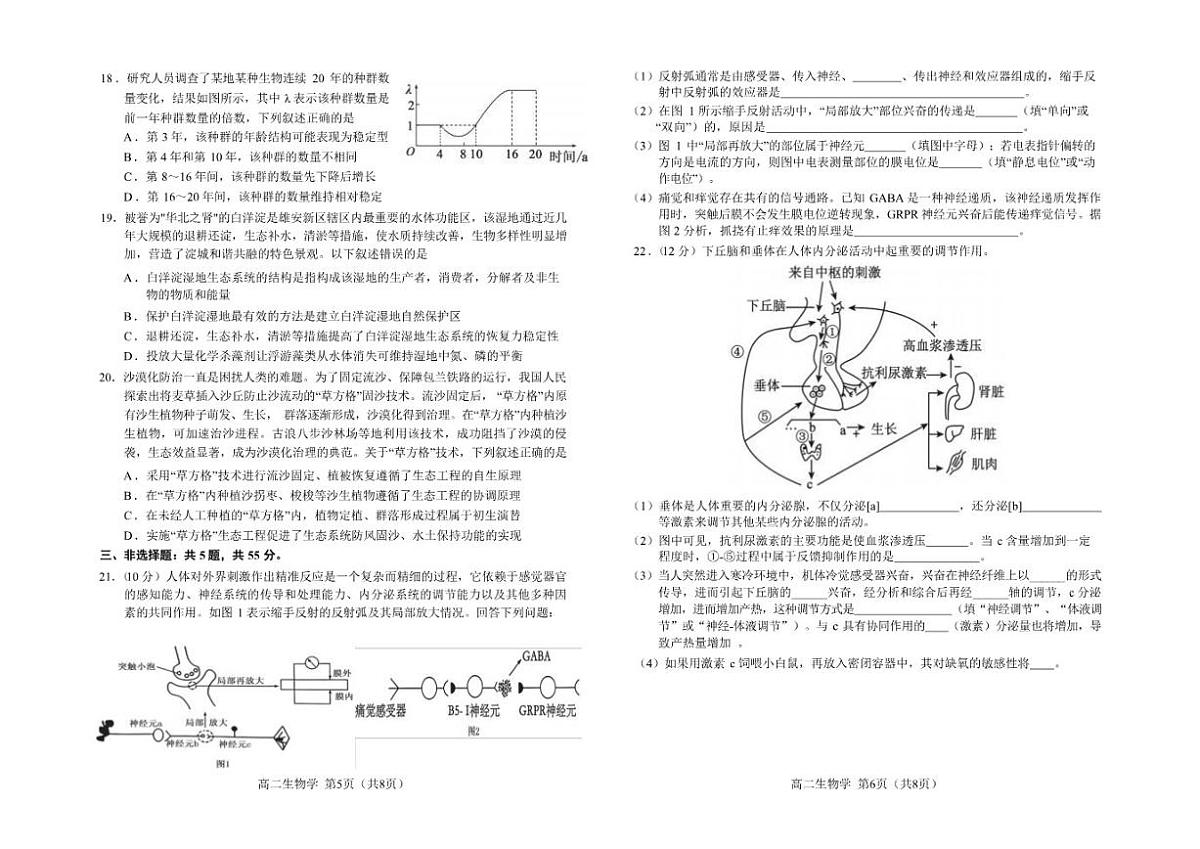 18．研究人员调查了某地某种生物连续 20 年的种群数
量变化，结果如图所示，其中 λ 表示该种群数量是
前一年种群数量的倍数，下列叙述正确的是
A．第 3 年，该种群的年龄结构可能表现为稳定型
B．第 4 年和第 10 年，该种群的数量不相同
C．第 8～16 年间，该种群的数量先下降后增长
D．第 16～20 年间，该种群的数量维持相对稳定
λ
2
1
O 4 8 10 16 20 时间/a
19．被誉为"华北之肾"的白洋淀是雄安新区辖区内最重要的水体功能区，该湿地通过近几
年大规模的退耕还淀，生态补水，清淤等措施，使水质持续改善，生物多样性明显增
加，营造了淀城和谐共融的特色景观。以下叙述错误的是
A．白洋淀湿地生态系统的结构是指构成该湿地的生产者，消费者，分解者及非生
物的物质和能量
B．保护白洋淀湿地最有效的方法是建立白洋淀湿地自然保护区
C．退耕还淀，生态补水，清淤等措施提高了白洋淀湿地生态系统的恢复力稳定性
D．投放大量化学杀藻剂让浮游藻类从水体消失可维持湿地中氮、磷的平衡
20．沙漠化防治一直是困扰人类的难题。为了固定流沙、保障包兰铁路的运行，我国人民
探索出将麦草插入沙丘防止沙流动的“草方格”固沙技术。流沙固定后，“草方格”内原
有沙生植物种子萌发、生长， 群落逐渐形成，沙漠化得到治理。在“草方格”内种植沙
生植物，可加速治沙进程。古浪八步沙林场等地利用该技术，成功阻挡了沙漠的侵
袭，生态效益显著，成为沙漠化治理的典范。关于“草方格”技术，下列叙述正确的是
A．采用“草方格”技术进行流沙固定、植被恢复遵循了生态工程的自生原理
B．在“草方格”内种植沙拐枣、梭梭等沙生植物遵循了生态工程的协调原理
C．在未经人工种植的“草方格”内，植物定植、群落形成过程属于初生演替
D．实施“草方格”生态工程促进了生态系统防风固沙、水土保持功能的实现
三、非选择题：共 5 题，共 55 分。
21．（10 分）人体对外界刺激作出精准反应是一个复杂而精细的过程，它依赖于感觉器官
的感知能力、神经系统的传导和处理能力、内分泌系统的调节能力以及其他多种因
素的共同作用。如图 1 表示缩手反射的反射弧及其局部放大情况。回答下列问题：
突触小泡
局部再放大
膜外
膜内
神经元a
局部 放大
神经元b
神经元c
图1
GABA
痛觉感受器
B5-I神经元
GRPR神经元
图2
高二生物学 第5页（共8页）
（1）反射弧通常是由感受器、传入神经、________、传出神经和效应器组成的，缩手反
射中反射弧的效应器是________。
（2）在图 1 所示缩手反射活动中，“局部放大”部位兴奋的传递是_______（填“单向”或
“双向”）的，原因是________。
（3）图 1 中“局部再放大”的部位属于神经元_______（填图中字母）；若电表指针偏转的
方向是电流的方向，则图中电表测量部位的膜电位是_______（填“静息电位”或“动
作电位”）。
（4）痛觉和痒觉存在共有的信号通路。已知 GABA 是一种神经递质，该神经递质发挥作
用时，突触后膜不会发生膜电位逆转现象，GRPR 神经元兴奋后能传递痒觉信号。据
图 2 分析，抓挠有止痒效果的原理是________。
22．（12 分）下丘脑和垂体在人体内分泌活动中起重要的调节作用。
来自中枢的刺激
下丘脑
①
②
④
+
高血浆渗透压
−
抗利尿激素
肾脏
垂体
⑤
…
b
a
+
生长
③
肝脏
肌肉
c
（1）垂体是人体重要的内分泌腺，不仅分泌[a]______________，还分泌[b]______________
等激素来调节其他某些内分泌腺的活动。
（2）图中可见，抗利尿激素的主要功能是使血浆渗透压_______。当 c 含量增加到一定
程度时，①-⑤过程中属于反馈抑制作用的是______________。
（3）当人突然进入寒冷环境中，机体冷觉感受器兴奋，兴奋在神经纤维上以______的形式
传导，进而引起下丘脑的______兴奋，经分析和综合后再经______轴的调节，c 分泌
增加，进而增加产热，这种调节方式是________________（填“神经调节”、“体液调
节”或“神经-体液调节”）。与 c 具有协同作用的____（激素）分泌量也将增加，导
致产热量增加 。
（4）如果用激素 c 饲喂小白鼠，再放入密闭容器中，其对缺氧的敏感性将____。
高二生物学 第6页（共8页）